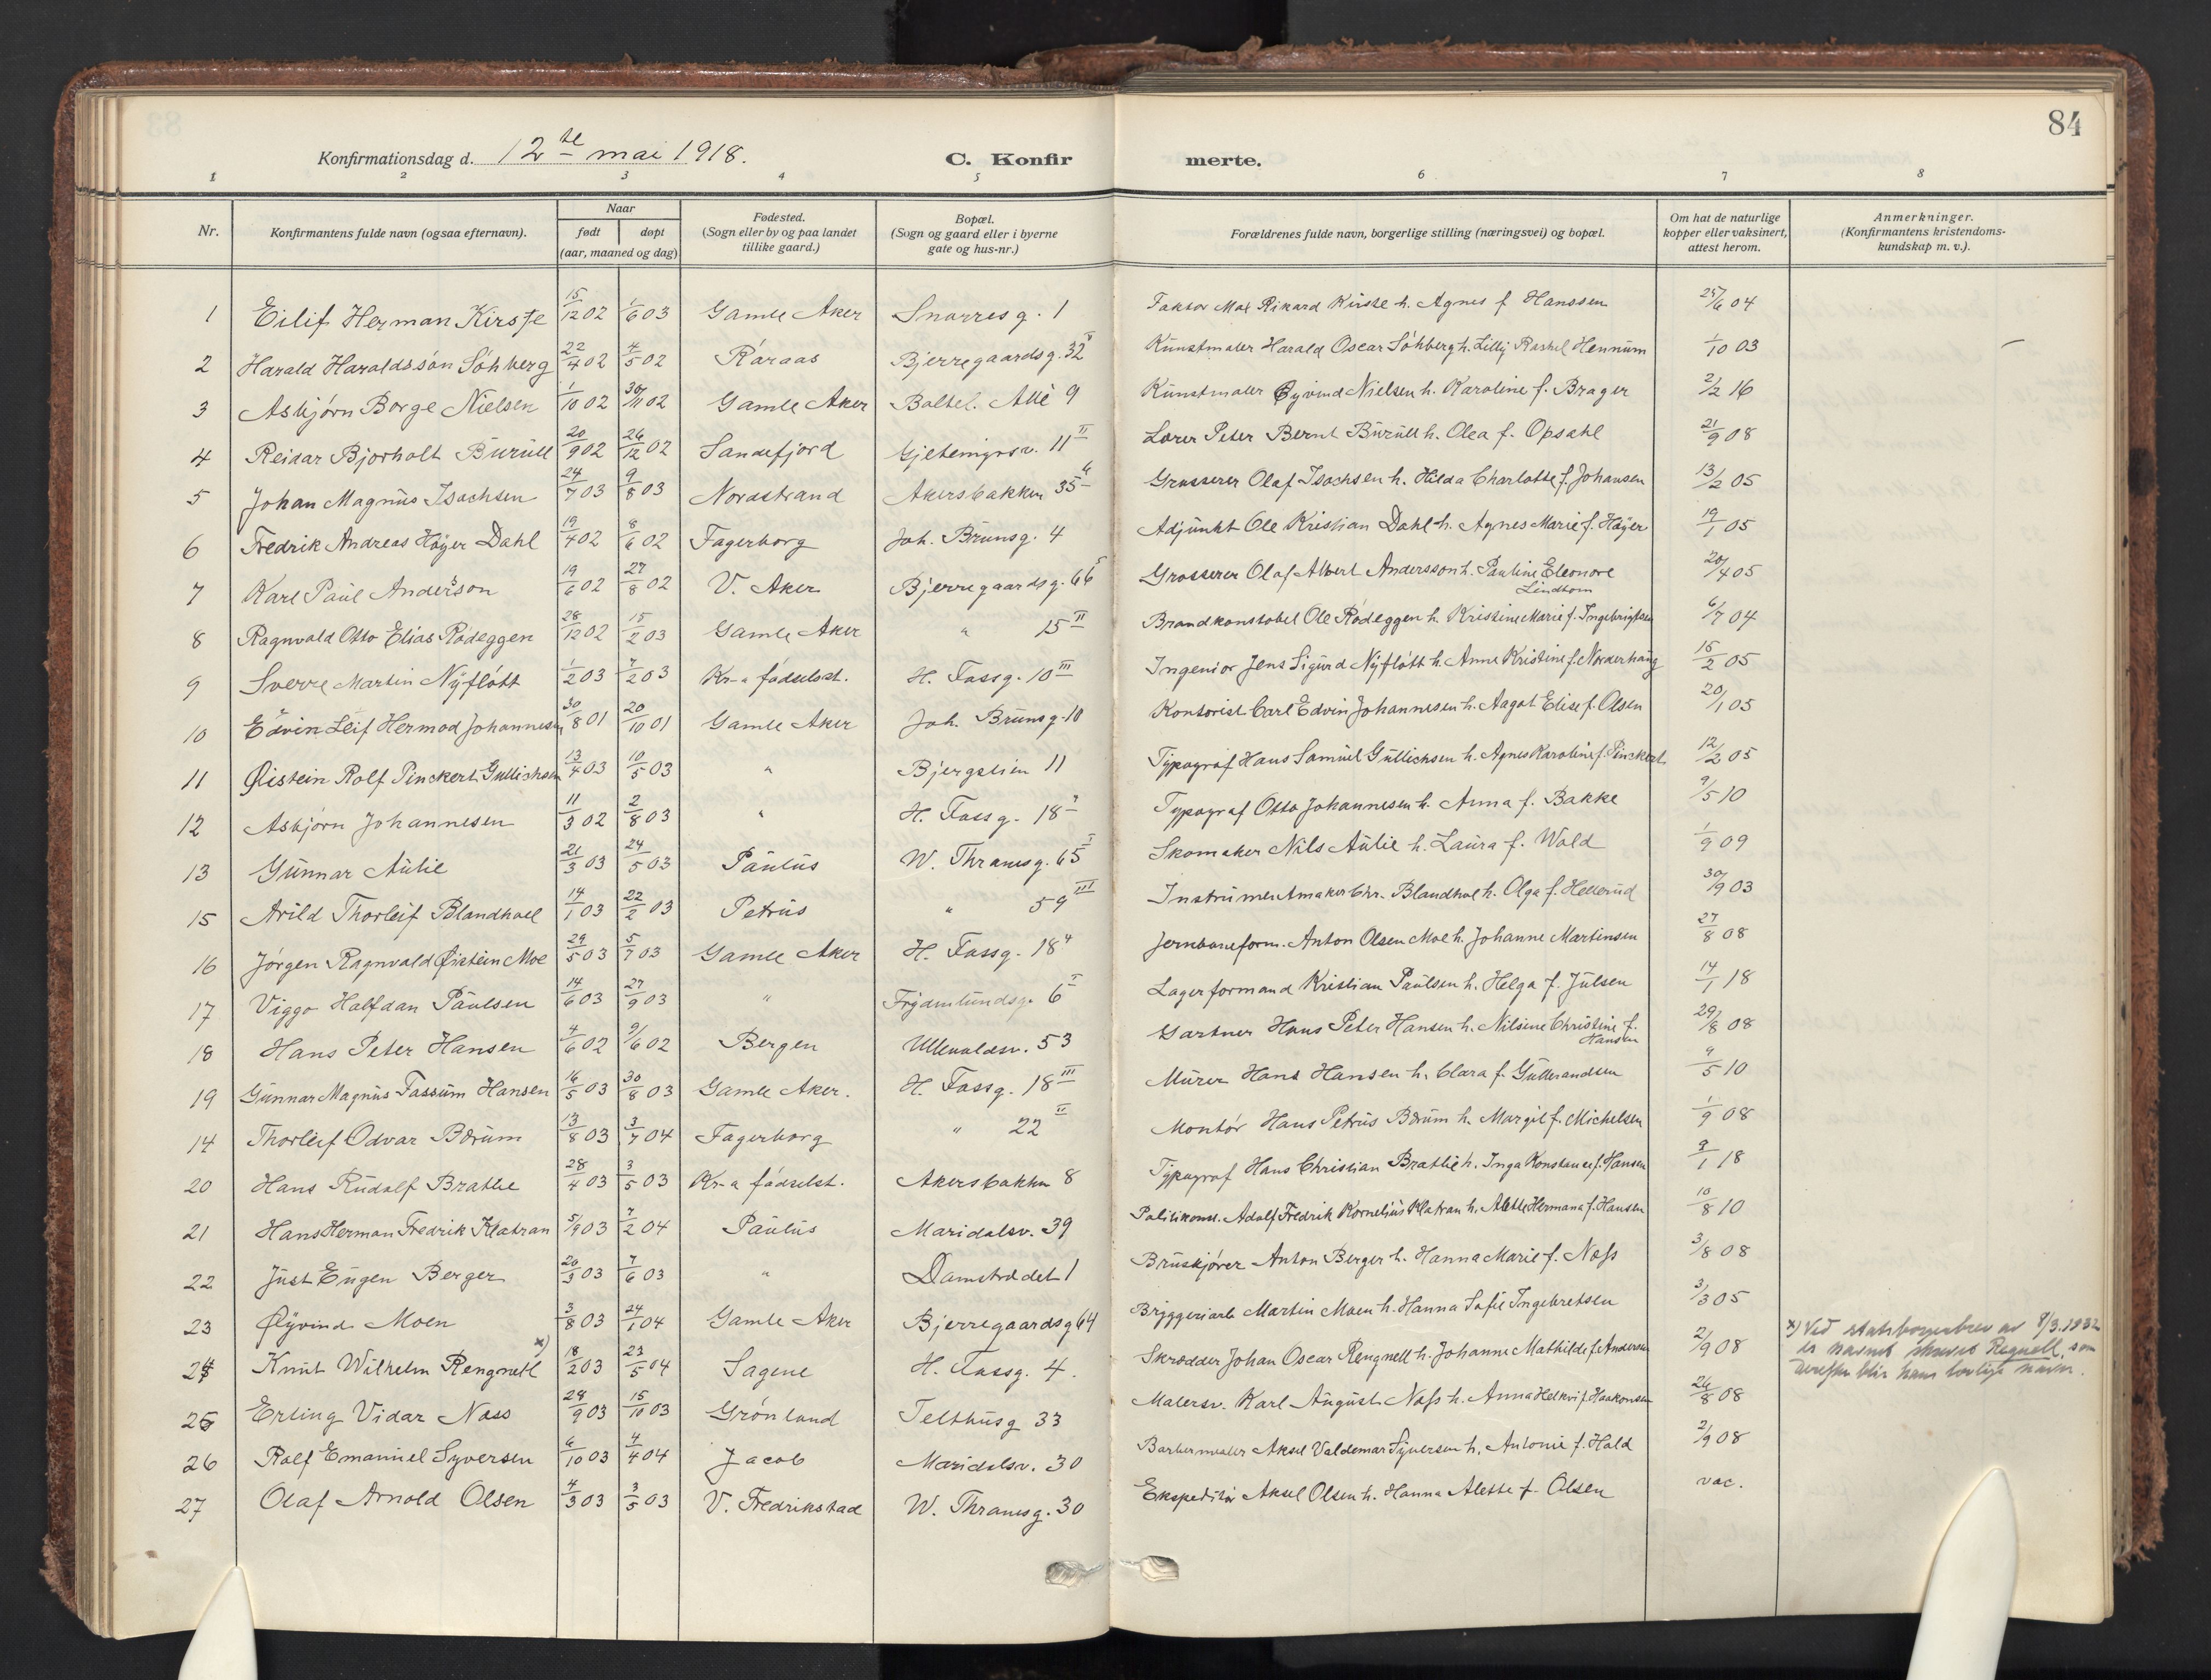 84
Konfirmationsdag d. 12te mai 1918. C. Konfirmerte.
1 2 3 4 5 6 7 8
Nr. Konfirmantens fulde navn (ogsaa efternavn). Naar født døpt (aar, maaned og dag) Fødested. (Sogn eller by og paa landet tillike gaard.) Bopæl. (Sogn og gaard eller i byerne gate og hus-nr.) Forældrenes fulde navn, borgerlige stilling (næringsvei) og bopæl. Om hat de naturlige kopper eller vaksinert, attest herom. Anmerkninger. (Konfirmantens kristendomskundskap m. v.).
1 Eilif Herman Kirste 15/12 02 1/6 03 Gamle Aker Snorresg. 1 Faktor Max Rikard Kirste h. Agnes f Hanssen 25/6 04
2 Harald Haraldssön Söhberg 22/4 02 4/5 02 Röraas Bjerregaardsg. 32 II Kunstmaler Harald Oscar Söhberg h. Lilly Rachel Hennum 1/10 03 –
3 Asbjörn Borge Nielsen 1/10 02 30/11 02 Gamle Aker Boltel. Allé 9 Kunstmaler Øyvind Nielsen h. Karoline f. Brager 2/2 16
4 Reidar Bjorholt Burull 20/9 02 26/12 02 Sandefjord Gjetemyrsv. 11 II Lærer Peter Bernt Burull h. Olea f. Opsahl 21/9 08
5 Johan Magnus Isachsen 24/7 03 9/8 03 Nordstrand Akersbakken 35 4 Grosserer Olaf Isachsen h. Hilda Charlotte f. Johansen 13/2 05
6 Fredrik Andreas Höyer Dahl 19/4 02 8/6 02 Fagerborg Joh. Brunsg. 4 Adjunkt Ole Kristian Dahl h. Agnes Marie f. Höyer 19/1 05
7 Karl Paul Andersson 19/6 02 27/8 02 V. Aker Bjerregaardsg. 66 5 Grosserer Olaf Albert Andersson h. Pauline Eleonore Lindbom 20/4 05
8 Ragnvald Otto Elias Rödeggen 28/12 02 15/2 03 Gamle Aker " 15 II Brandkonstabel Ole Rödeggen h. Kristine Marie f. Ingebrigtsen 6/7 04
9 Sverre Martin Nyflött 1/2 03 7/2 03 Kr-a födselsst. H. Fossg. 10 III Ingeniör Jens Sigurd Nyflött h. Anne Kristine f. Norderhaug 15/2 05
10 Edvin Leif Hermod Johannesen 30/8 01 20/10 01 Gamle Aker Joh. Brunsg. 10 Kontorist Carl Edvin Johannesen h. Aagot Elise f. Olsen 20/1 05
11 Øistein Rolf Pinckert Gullichsen 13/4 03 10/5 03 " Bjergstien 11 Typograf Hans Samuel Gullichsen h. Agnes Karoline f. Pinckert 12/2 05
12 Asbjörn Johannesen 11/3 02 2/8 03 " H. Fossg. 18 Typograf Otto Johannesen h. Anna f. Bakke 9/5 10
13 Gunnar Aulie 21/3 03 24/5 03 Paulus W. Thranesg. 65 I Skomaker Nils Aulie h. Laura f. Wold 1/9 09
15 Arild Thorleif Blandhoel 14/1 03 22/2 03 Petrus " 59 III Instrumentmaker Chr. Blandhol h. Olga f. Hellerud 30/9 03
16 Jörgen Ragnvald Øistein Moe 29/5 03 5/7 03 Gamle Aker H. Fossg. 18 4 Jernbaneform. Anton Olsen Moe h. Johanne Martinsen 27/8 08
17 Viggo Halfdan Paulsen 14/6 03 27/9 03 " Frydenlundsg. 6 I Lagerformand Kristian Paulsen h. Helga f. Julsen 14/1 18
18 Hans Peter Hansen 4/6 02 9/6 02 Bergen Ullevoldsv. 53 Gartner Hans Peter Hansen h. Nilsine Christine f. Hansen 29/8 08
19 Gunnar Magnus Fossum Hansen 16/5 03 30/8 03 Gamle Aker. H. Fossg. 18 III Murer Hans Hansen h. Clara f. Gulbrandsen 9/5 10
14 Thorleif Odvar Bærum 13/8 03 3/7 04 Fagerborg " 22 II Montör Hans Petrus Bærum h. Margit f. Michelsen 1/9 08
20 Hans Rudolf Brathe 28/4 03 3/5 03 Kr-a födselst. Akersbakken 8 Typograf Hans Christian Brathe h. Inga Konstance f. Hansen 9/1 18
21 Hans Herman Fredrik Klatran 5/9 03 7/2 04 Paulus Maridalsv. 39 Politikonst. Adolf Fredrik Kornelius Klatran h. Alette Hermana f. Hansen 10/8 10
22 Just Eugen Berger 20/3 03 7/6 03 " Damstrædet 1 Bruskjører Anton Berger h. Hanna Marie f. Næss 3/8 08
23 Øyvind Moen 3/8 03 24/1 04 Gamle Aker Bjerregaardsg 64 Bryggeriarb Martin Moen h. Hanna Sofie Ingebretsen 3/3 05
24 Knut Wilhelm Rengnell x) 18/2 03 23/5 04 Sagene H. Fossg. 4. Skrædder Johan Oscar Rengnell h. Johanne Mathilde f. Andersen 2/9 08 x) Ved statsborgerbrev av 8/3.1932 er navnet skrevet Regnell, som derefter blir hans lovlige navn.
25 Erling Vidar Næss 28/9 03 15/10 03 Grönland Telthusg 33 Malersv. Karl August Næss h. Anna Helkvi f. Haakonsen 26/8 08
26 Rolf Emanuel Syversen 6/10 03 4/4 04 Jacob Maridalsv. 30 Barbermester Aksel Valdemar Syversen h. Antonie f. Hold 2/9 08
27 Olaf Arnold Olsen 4/3 03 3/5 03 V. Fredrikstad W. Thranesg. 30 Ekspeditör Aksel Olsen h. Hanna Alette f. Olsen vac.